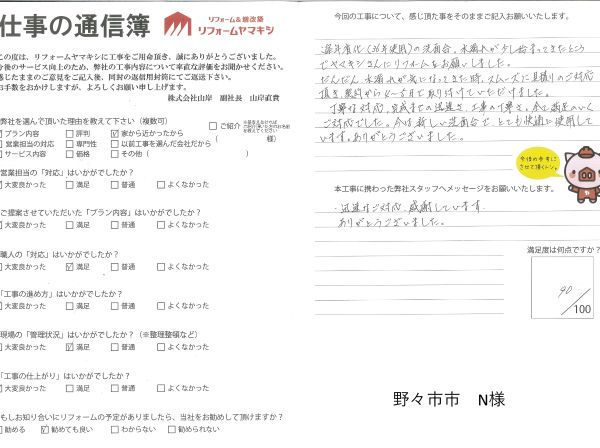 仕事の通信簿
リフォーム&増改築
リフォームヤマキシ
この度は、リフォームヤマキシに工事をご用命頂き、誠にありがとうございました。
今後のサービス向上のため、弊社の工事内容について率直な評価をお聞かせください。
感じたままのご意見をご記入後、同封の返信用封筒にてご返送下さい。
お手数をおかけしますが、よろしくお願い申し上げます。
株式会社山岸　副社長　山岸直貴
弊社を選んで頂いた理由を教えて下さい（複数可）
プラン内容 評判 家から近かったから
営業担当の対応 専門性 以前工事を選んだ会社だから
サービス内容 価格 その他（ ）
ご紹介
（ 様）
営業担当の「対応」はいかがでしたか？
大変良かった 満足 普通 よくなかった
ご提案させていただいた「プラン内容」はいかがでしたか？
大変良かった 満足 普通 よくなかった
職人の「対応」はいかがでしたか？
大変良かった 満足 普通 よくなかった
「工事の進め方」はいかがでしたか？
大変良かった 満足 普通 よくなかった
現場の「管理状況」はいかがでしたか？（※整理整頓など）
大変良かった 満足 普通 よくなかった
「工事の仕上がり」はいかがでしたか？
大変良かった 満足 普通 よくなかった
もしお知り合いにリフォームの予定がありましたら、当社をお勧めして頂けますか？
勧める 勧めても良い わからない 勧められない
今回の工事について、感じ頂た事をそのままご記入お願いいたします。
の洗面台、水漏れが少し始まってきたところ
でヤマキシさんにリフォームをお願いしました。
だんだん水漏れが気になってきた時、スムーズに見積りのご対応
頂き、契約から取り付けていただけました。
丁寧な対応、完成までの迅速さ、工事の丁寧さ、全て満足のいく
ご対応でした。今は新しい洗面台でとても快適に使用して
います。ありがとうございました。
今後の参考に
させて頂くトン。
本工事に携わった弊社スタッフへメッセージをお願いいたします。
・迅速なご対応、感謝しています。
ありがとうございました。
満足度は何点ですか？
90
/100
野々市市　N様